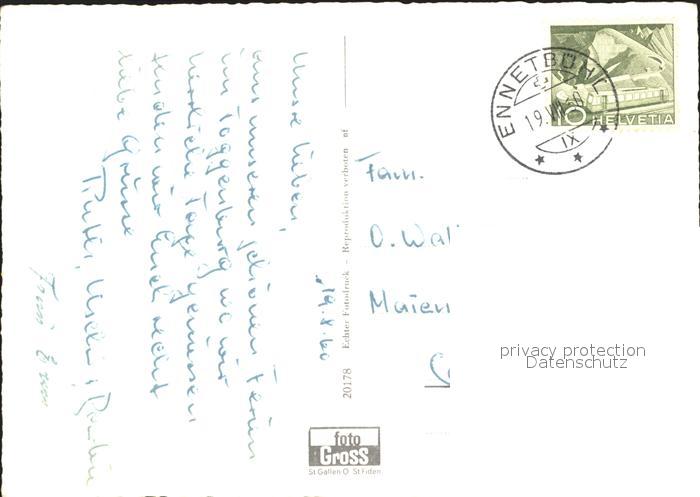 Unsre Lieben,
aus unseren schönen Ferien
im Toggenburg wo wir
herrliche Tage geniessen
senden wir Euch recht
liebe Grüsse
Ruth,
19.8.60
20178 Echter Fotodruck - Reproduktion verboten nf
Fam.
O. Wal
Maien
ENNETBÜHL
19.VIII.60
IX
10 HELVETIA
privacy protection
Datenschutz
foto
Gross
St Gallen O St Fiden